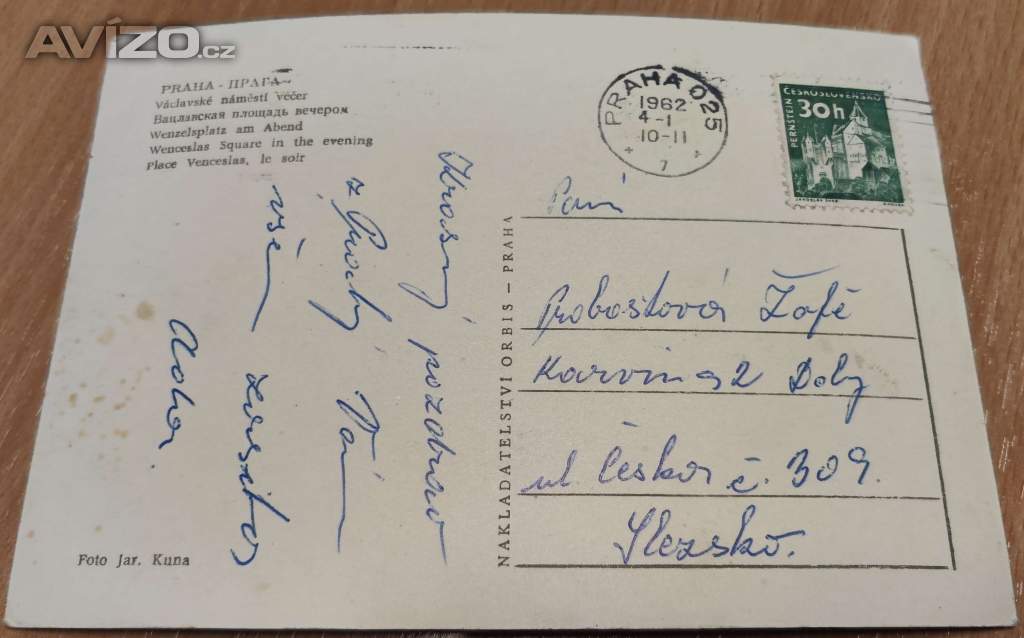 AVÍZO.cz
PRAHA - ПРАГА
Václavské náměstí večer
Вацлавская площадь вечером
Wenzelsplatz am Abend
Wenceslas Square in the evening
Place Venceslas, le soir
PRAHA 025
1962
4-1
10-11
7
ČESKOSLOVENSKO
30h
PERNŠTEJN
Krásný pozdrav
z Prahy Vám
všem zasílá
Foto Jar. Kuna
NAKLADATELSTVÍ ORBIS – PRAHA
Paní
Probostová Žofě
Karvina 2 Doly
ul Česka č. 309.
Slezsko.